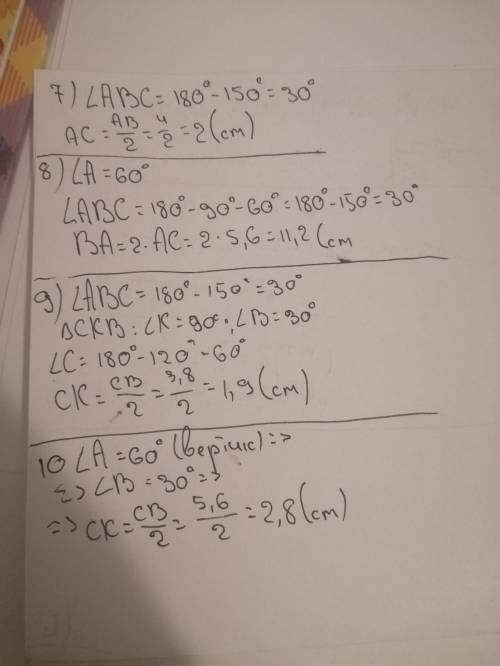 7) ∠ABC = 180° - 150° = 30°
AC = AB/2 = 4/2 = 2 (cm)
8) ∠A = 60°
∠ABC = 180° - 90° - 60° = 180° - 150° = 30°
BA = 2 · AC = 2 · 5,6 = 11,2 (cm
9) ∠ABC = 180° - 150° = 30°
△CKB: ∠K = 90°, ∠B = 30°
∠C = 180° - 120° - 60°
CK = CB/2 = 3,8/2 = 1,9 (cm)
10 ∠A = 60° =>
=> ∠B = 30° =>
=> CK = CB/2 = 5,6/2 = 2,8 (cm)